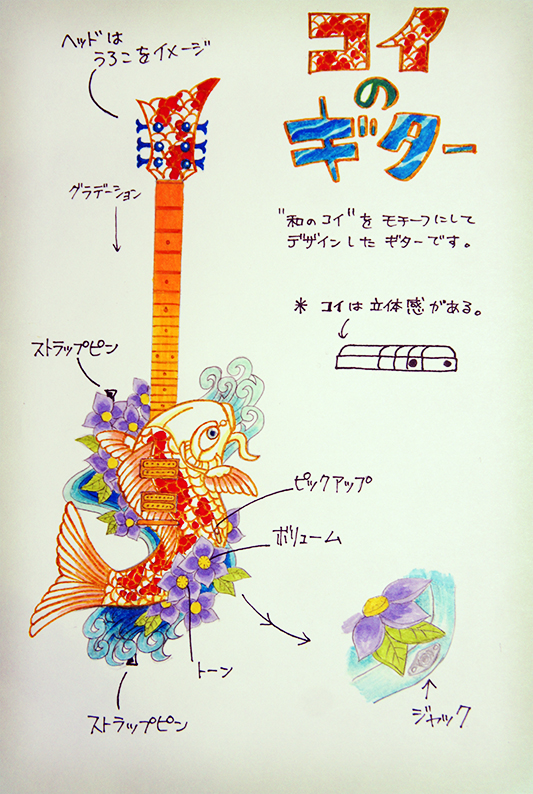 コイ
の
ギター
ヘッドは
うろこをイメージ
グラデーション
"和のコイ"をモチーフにして
デザインしたギターです。
* コイは立体感がある。
ストラップピン
ピックアップ
ボリューム
トーン
ストラップピン
ジャック